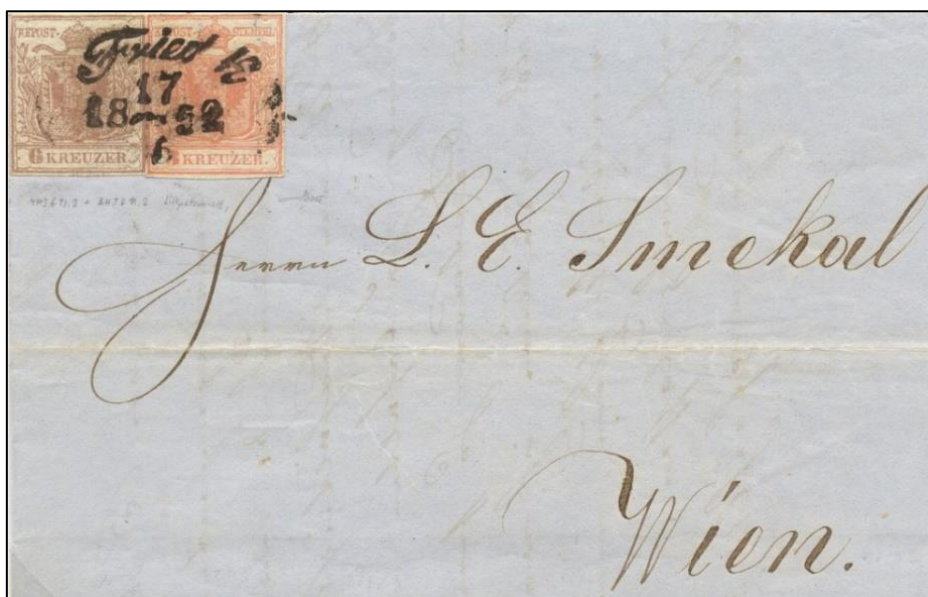 KKPOST- KKPOST- STEMPEL
Fried
17
18 52
6
6 KREUZER. 3 KREUZER.
Herrn L. E. Smekal
Wien.